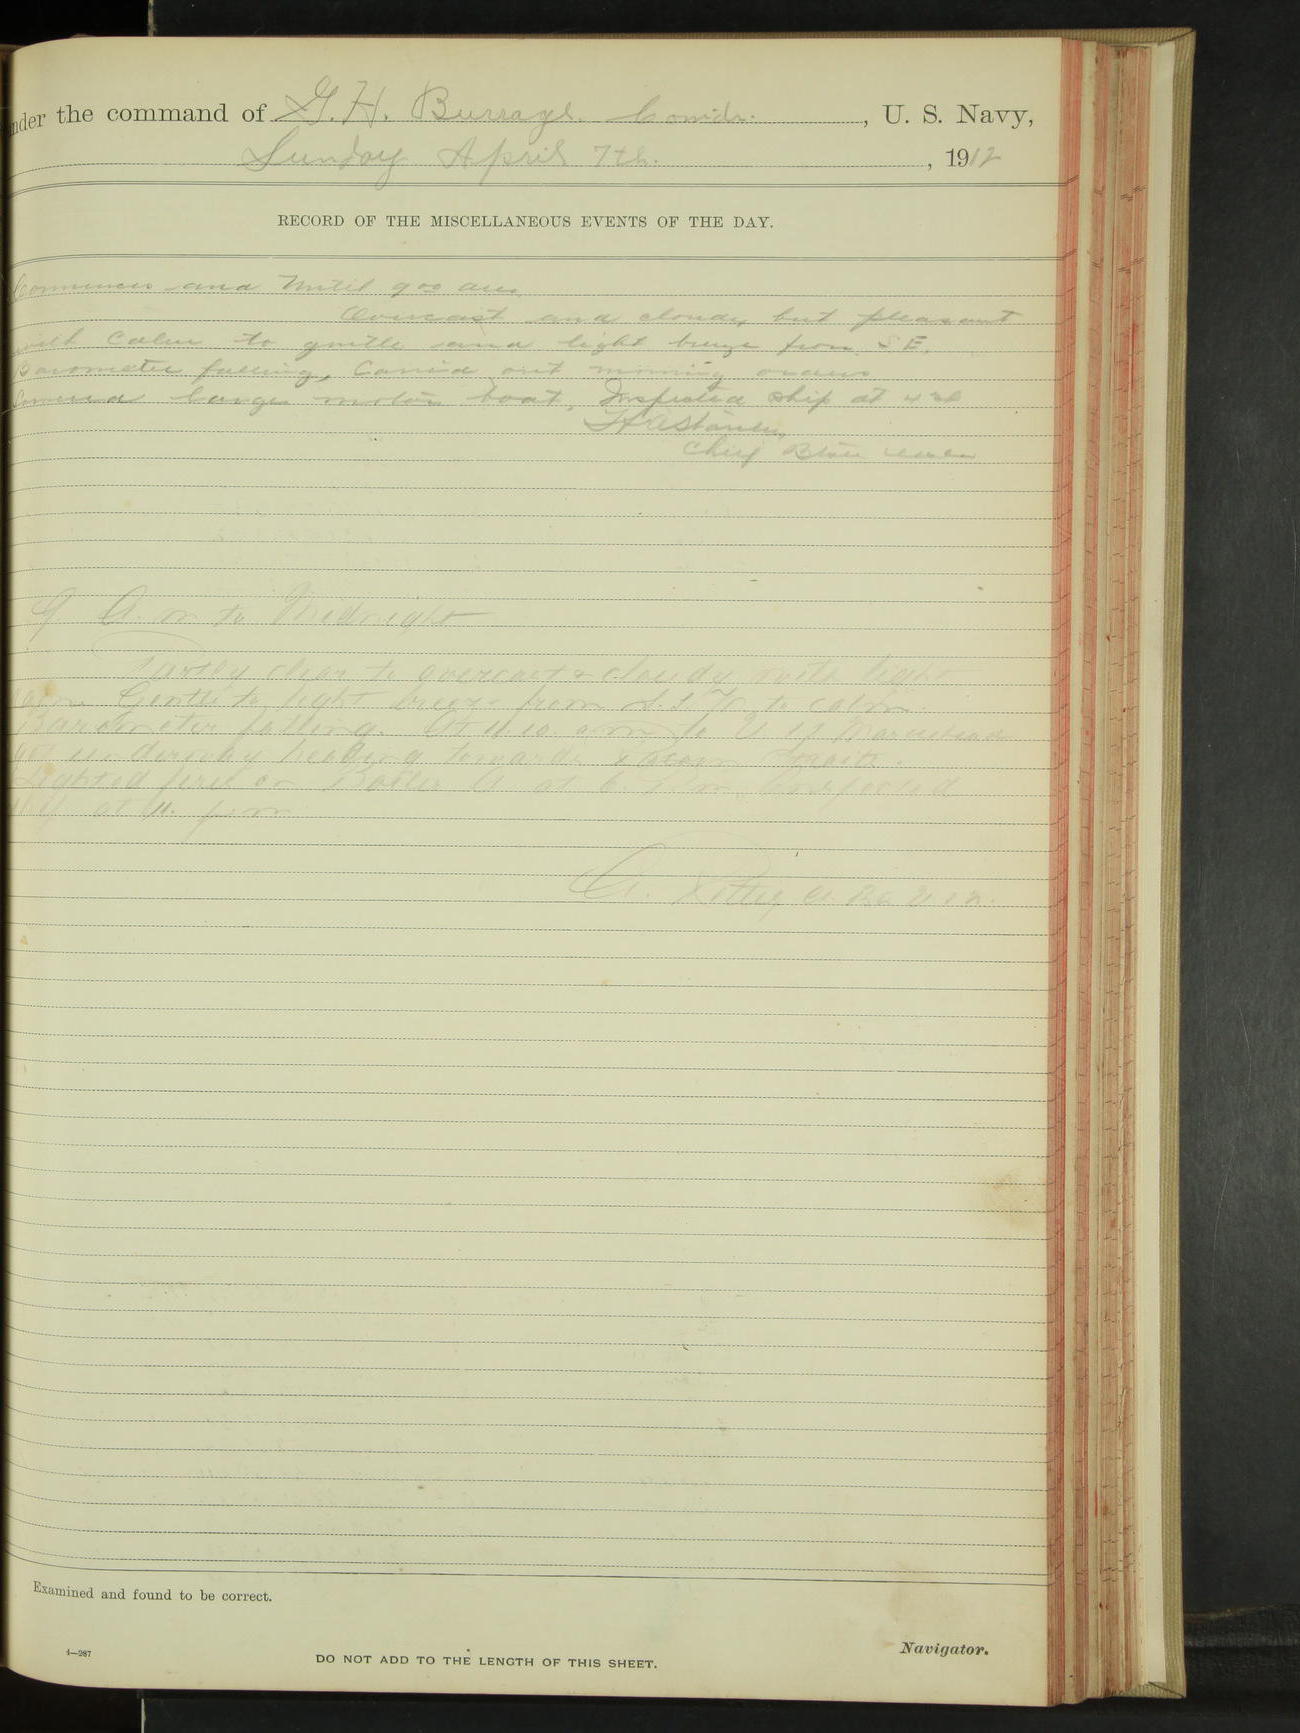 under the command of G. H. Burrage. Comdr. , U. S. Navy,
Sunday April 7th. , 1912
RECORD OF THE MISCELLANEOUS EVENTS OF THE DAY.
Commences and Until 9 00 am
Overcast and cloudy but pleasant
with calm to gentle and light breeze from SE.
Barometer falling, Carried out morning orders
barge motor boat, Inspected ship at
Chief
9 A. m to Midnight
Partly clear to overcast & cloudy with light
Gentle to light breeze from to calm
Barometer falling. At 11.10. am
got underway heading towards
Lighted fires on Boiler A at 6. P.m. Inspected
at 11. pm
A.
Examined and found to be correct.
Navigator.
4—287
DO NOT ADD TO THE LENGTH OF THIS SHEET.